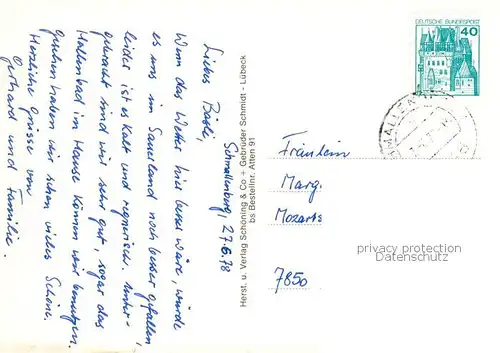 Schmallenberg, 27.6.78
Liebes Bäsle,
Wenn das Wetter hier besser wäre, würde
es uns im Sauerland noch besser gefallen,
leider ist es kalt und regnerisch. Unter-
gebracht sind wir sehr gut, sogar das
Hallenbad im Hause können wir benutzen.
Gesehen haben wir schon vieles Schöne.
Herzliche Grüsse von
Gerhard und Familie.
Herst. u. Verlag Schöning & Co + Gebrüder Schmidt - Lübeck
bs Bestellnr. Atten 91
DEUTSCHE BUNDESPOST
40
Fräulein
Marg.
Mozarts
7850
privacy protection
Datenschutz